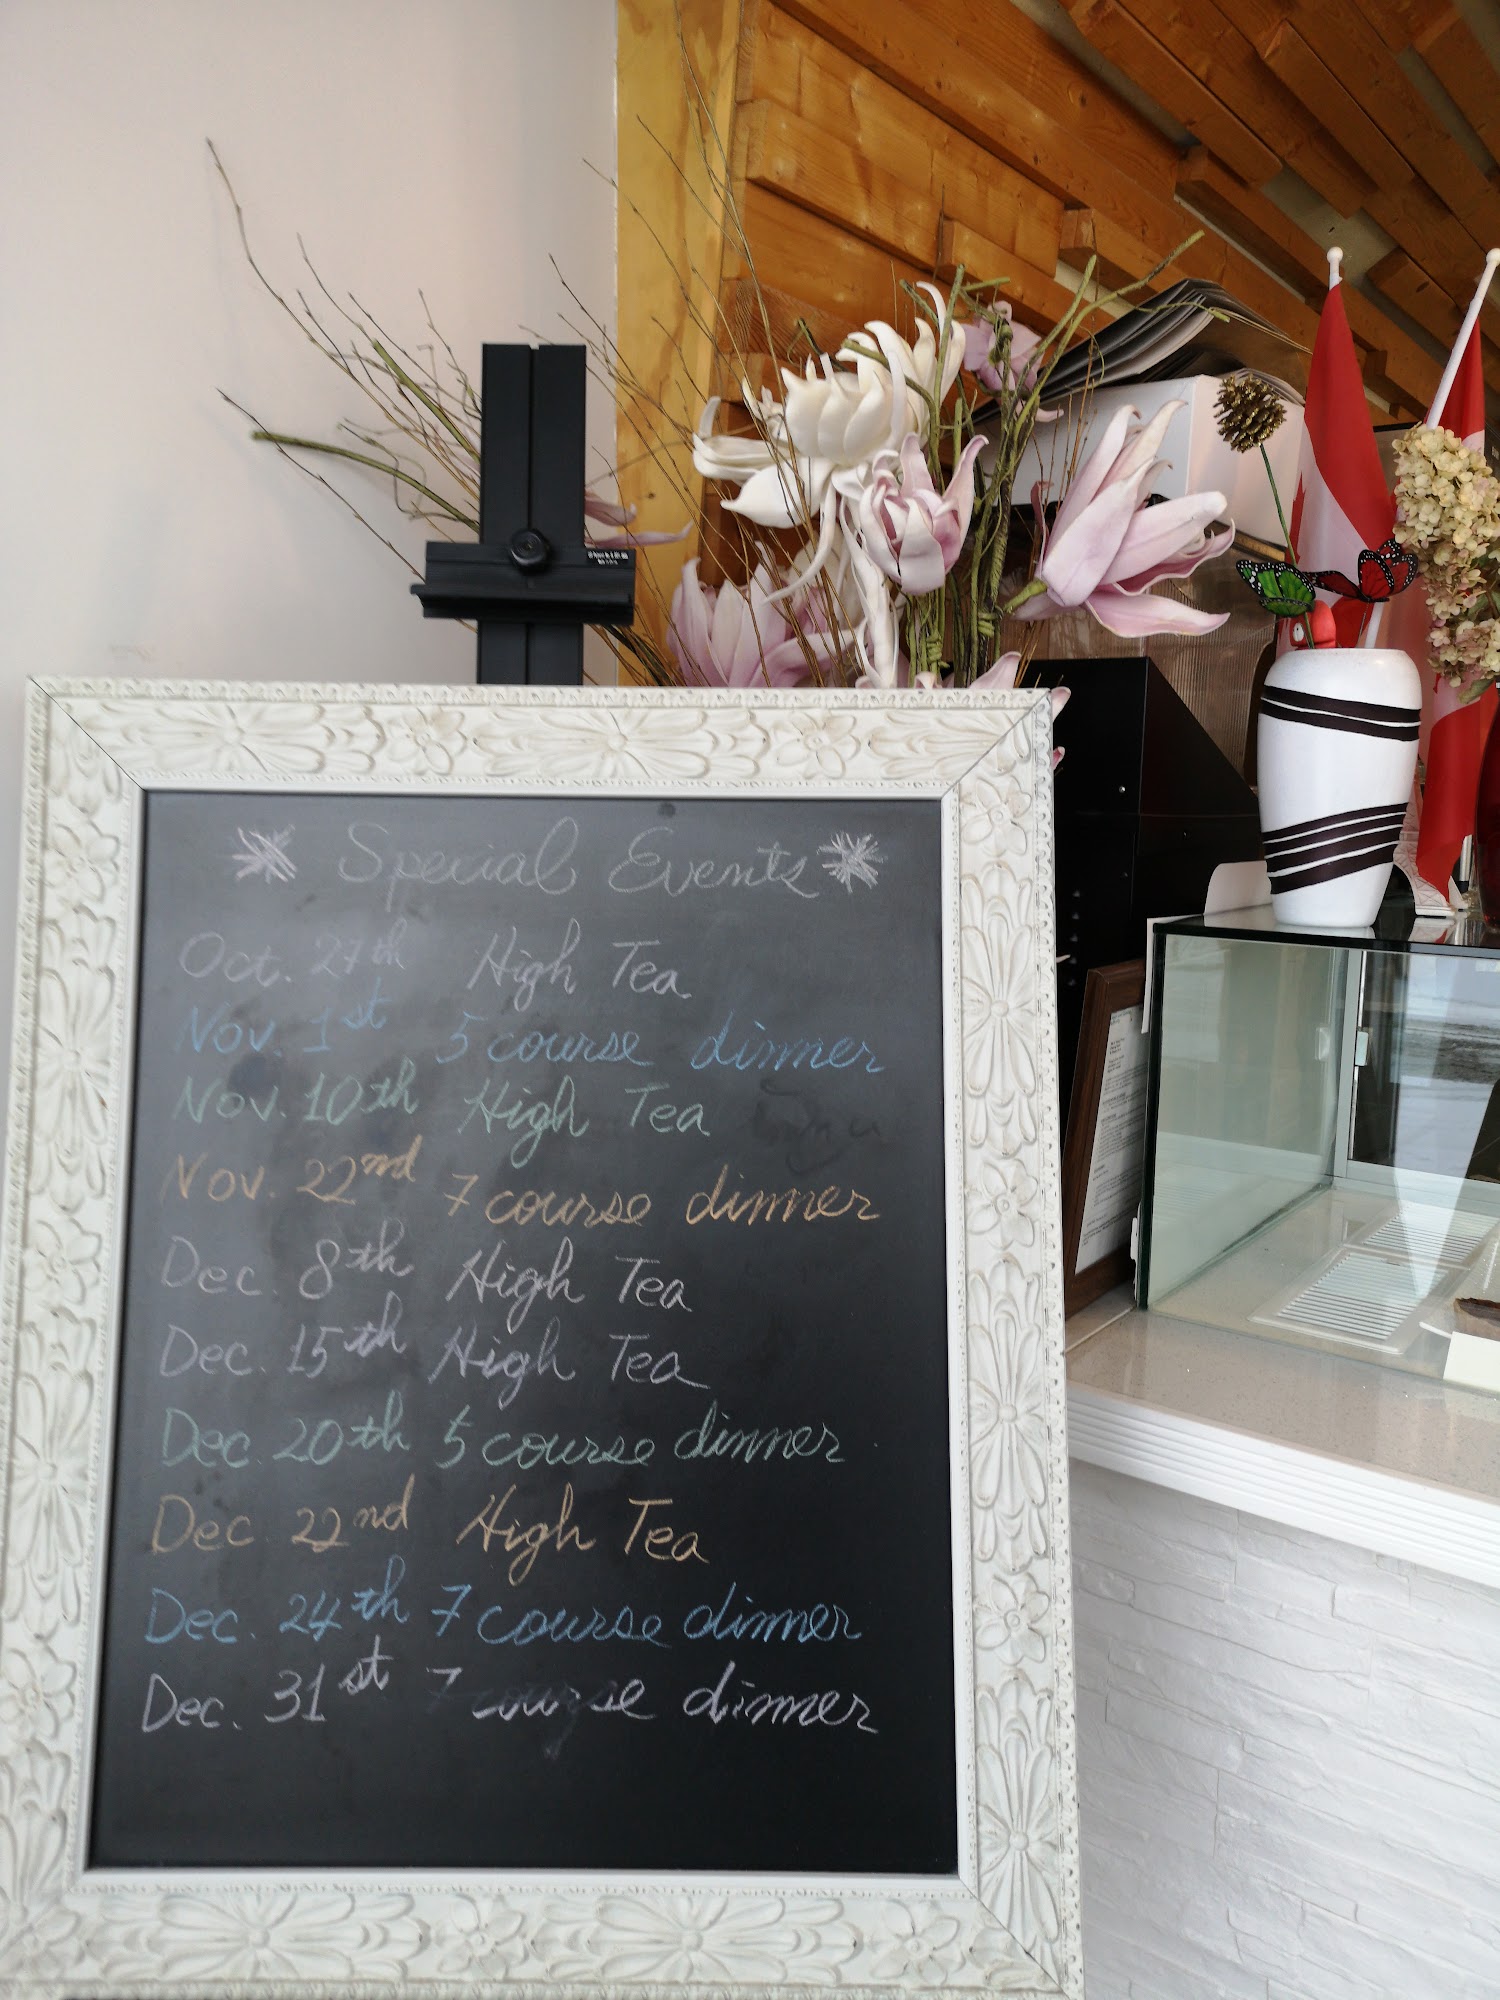 Special Events
Oct. 27th High Tea
Nov. 1st 5 course dinner
Nov. 10th High Tea
Nov. 22nd 7 course dinner
Dec. 8th High Tea
Dec. 15th High Tea
Dec. 20th 5 course dinner
Dec. 22nd High Tea
Dec. 24th 7 course dinner
Dec. 31st 7 course dinner